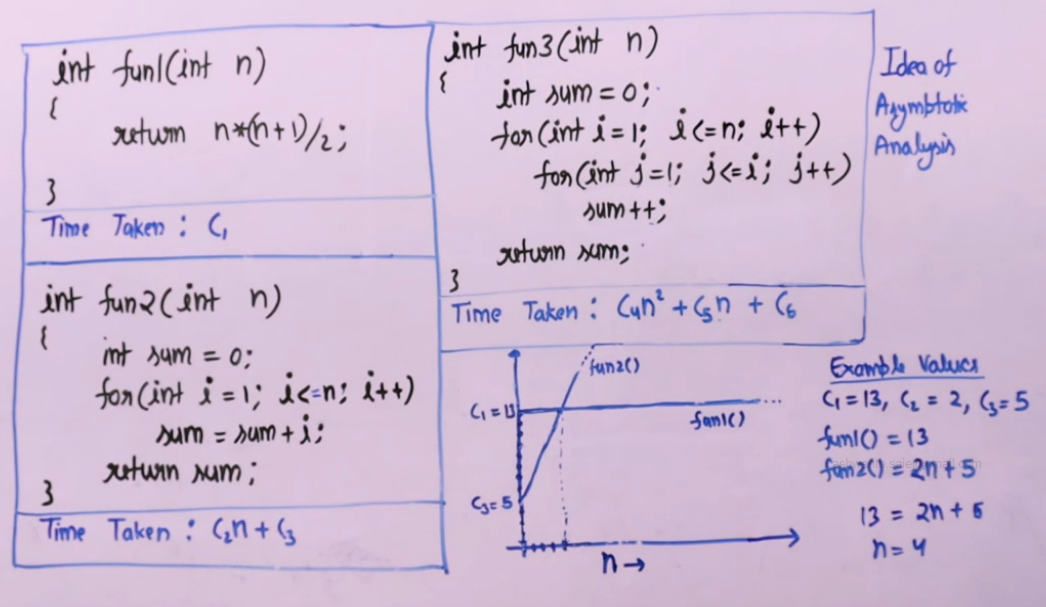 int fun1(int n)
{
return n*(n+1)/2;
}
Time Taken : C₁
int fun2(int n)
{
int sum = 0;
for(int i = 1; i<=n; i++)
sum = sum + i;
return sum;
}
Time Taken : C₂n + C₃
int fun3(int n)
{
int sum = 0;
for(int i = 1; i<=n; i++)
for(int j = 1; j<=i; j++)
sum++;
return sum;
}
Time Taken : C₄n² + C₅n + C₆
Idea of
Asymptotic
Analysis
fun2()
C₁ = 13
fun1()
C₃ = 5
n →
Example Values
C₁ = 13, C₂ = 2, C₃ = 5
fun1() = 13
fun2() = 2n + 5
13 = 2n + 5
n = 4